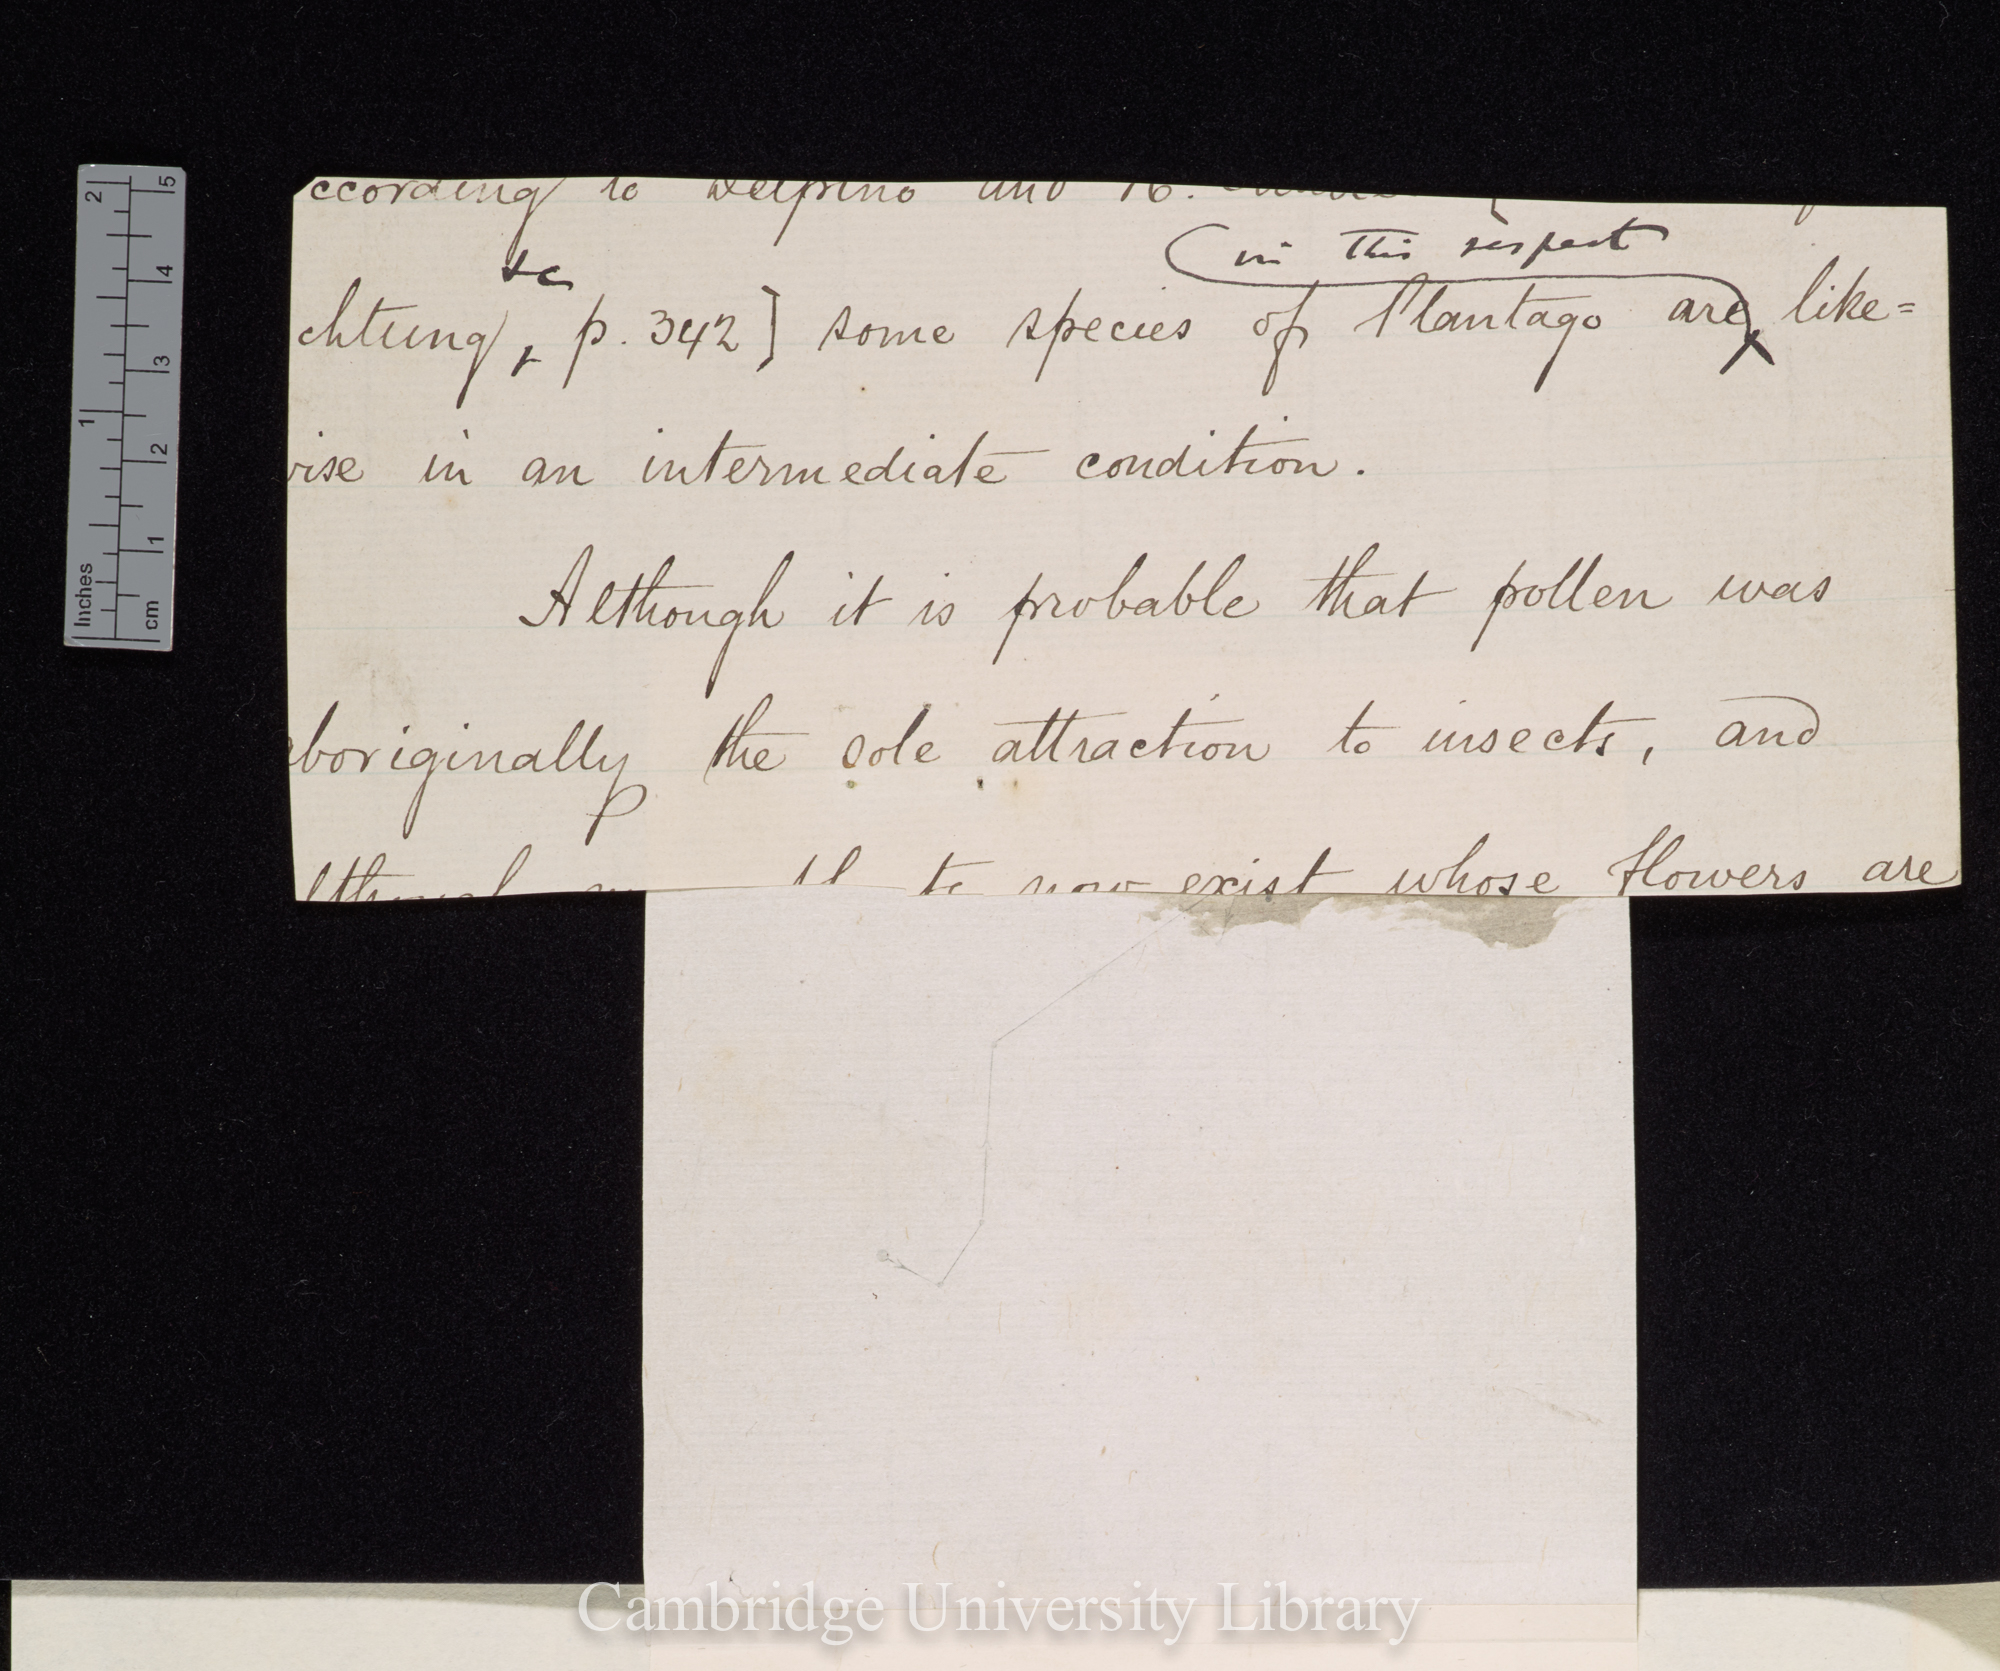 ccording to Delpino and H.
in this respect
&c
chtung, p. 342] some species of Plantago are like=
wise in an intermediate condition.
Although it is probable that pollen was
aboriginally the sole attraction to insects, and
now exist whose flowers are
2 5
4
3
1
2
1
Inches
cm
Cambridge University Library